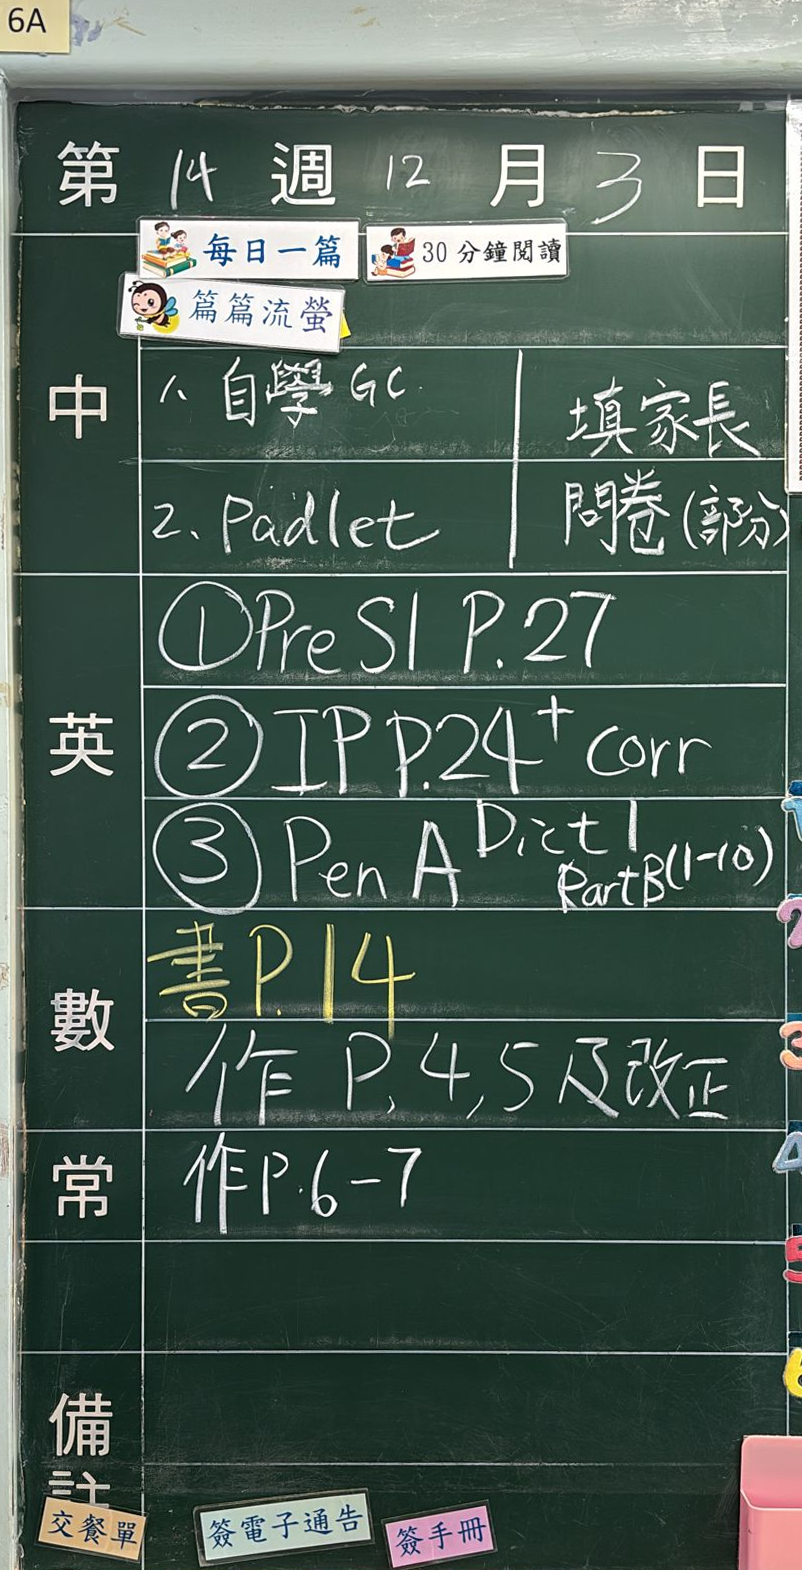 6A
第 14 週 12 月 3 日
每日一篇 30分鐘閱讀
篇篇流螢
中
1. 自學 GC. 填家長
2. Padlet 問卷(部分)
英
① Pre S1 P.27
② IP P.24 + corr
③ Pen A Dict 1
Part B (1-10)
數
書 P.14
作 P, 4, 5 及改正
常
作 P.6-7
備
註
交餐單 簽電子通告 簽手冊